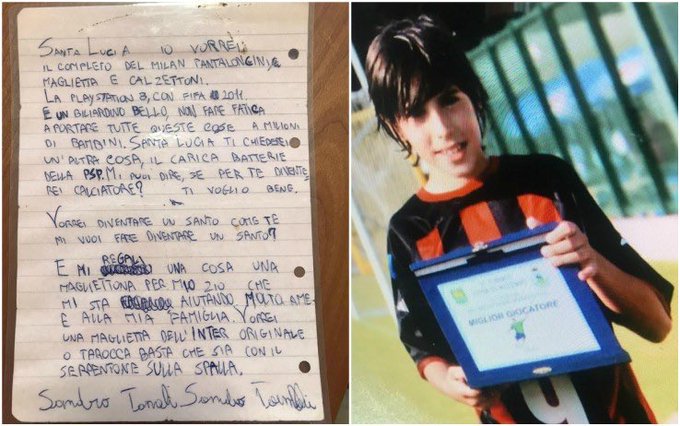 SANTA LUCIA IO VORREI
IL COMPLETO DEL MILAN PANTALONCINI, E
MAGLIETTA E CALZETTONI.
LA PLAYSTATION 3, CON FIFA 2011.
E UN BILIARDINO BELLO, NON FARE FATICA
A PORTARE TUTTE QUESTE COSE A MILIONI
DI BAMBINI. SANTA LUCIA TI CHIEDEREI
UN'ALTRA COSA, IL CARICA BATTERIE
DELLA PSP. MI PUOI DIRE, SE PER TE DIVENTE
REI CALCIATORE? TI VOGLIO BENE.
VORREI DIVENTARE UN SANTO COME TE
MI VUOI FARE DIVENTARE UN SANTO?
E MI REGALI UNA COSA UNA
MAGLIETTONA PER MIO ZIO CHE
MI STA AIUTANDO MOLTO A ME
E ALLA MIA FAMIGLIA. VORREI
UNA MAGLIETTA DELL'INTER ORIGINALE
O TAROCCA BASTA CHE SIA CON IL
SERPENTONE SULLA SPALLA.
Sandro Tonali Sandro Tonali
MIGLIOR GIOCATORE
9